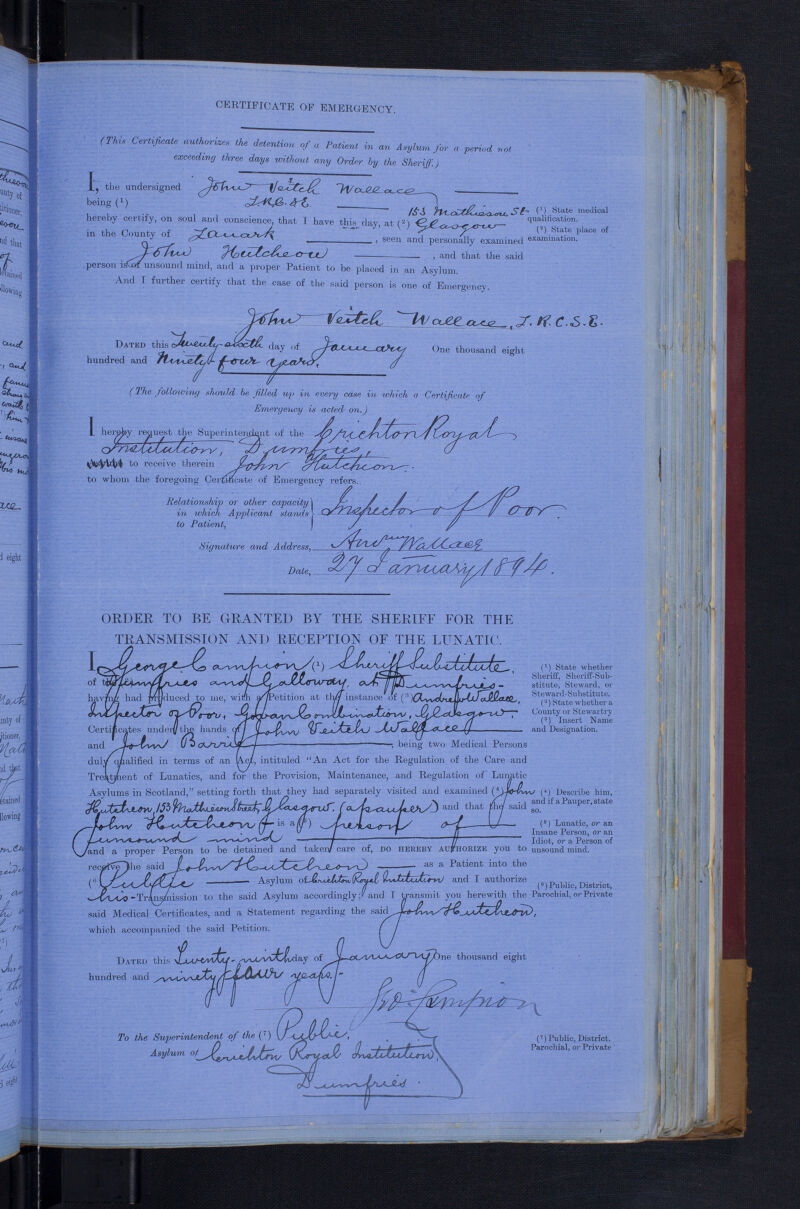 CERTIFICATE OF EMERGENCY.
(This Certificate authorizes the detention of a Patient in an Asylum for a period not
exceeding three days without any Order by the Sheriff.)
I, the undersigned John Veitch Wallace
being (¹) L.R.C.S.E.
153 Mathieson St
hereby certify, on soul and conscience, that I have this day, at (²) Glasgow
in the County of Lanark, seen and personally examined
John Hutcheon, and that the said
person is of unsound mind, and a proper Patient to be placed in an Asylum.
And I further certify that the case of the said person is one of Emergency.
(¹) State medical
qualification.
(²) State place of
examination.
John Veitch Wallace, L.R.C.S.E.
DATED this Twenty-sixth day of January One thousand eight
hundred and Ninety four years,
(The following should be filled up in every case in which a Certificate of
Emergency is acted on.)
I hereby request the Superintendent of the Crichton Royal
Institution, Dumfries,
to receive therein John Hutchion.
to whom the foregoing Certificate of Emergency refers.
Relationship or other capacity
in which Applicant stands
to Patient,
Inspector of Poor.
Signature and Address, Andw Wallace
Date, 27 January 1894.
ORDER TO BE GRANTED BY THE SHERIFF FOR THE
TRANSMISSION AND RECEPTION OF THE LUNATIC.
I George Campion (¹) Sheriff Substitute,
of Dumfries and Galloway at Dumfries
having had produced to me, with a Petition at the instance of (³) Andrew Wallace,
Inspector of Poor, Govan Combination, Glasgow
Certificates under the hands of John Veitch Wallace
and John Barrie, being two Medical Persons
duly qualified in terms of an Act, intituled "An Act for the Regulation of the Care and
Treatment of Lunatics, and for the Provision, Maintenance, and Regulation of Lunatic
Asylums in Scotland," setting forth that they had separately visited and examined (⁴) John
Hutcheon, 153 Mathieson Street, Glasgow. (a pauper) and that the said
John Hutcheon is a (⁵) person of
unsound mind
and a proper Person to be detained and taken care of, DO HEREBY AUTHORIZE you to
receive the said John Hutcheon as a Patient into the
(⁶) Public Asylum of Crichton Royal Institution and I authorize
his Transmission to the said Asylum accordingly; and I transmit you herewith the
said Medical Certificates, and a Statement regarding the said John Hutcheon,
which accompanied the said Petition.
(¹) State whether
Sheriff, Sheriff-Sub-
stitute, Steward, or
Steward-Substitute.
(²) State whether a
County or Stewartry
(³) Insert Name
and Designation.
(⁴) Describe him,
and if a Pauper, state
so.
(⁵) Lunatic, or an
Insane Person, or an
Idiot, or a Person of
unsound mind.
(⁶) Public, District,
Parochial, or Private
DATED this Twenty-ninth day of January One thousand eight
hundred and ninety four years.
Geo. Campion
To the Superintendent of the (⁷) Public,
Asylum of Crichton Royal Institution,
Dumfries.
(⁷) Public, District,
Parochial, or Private